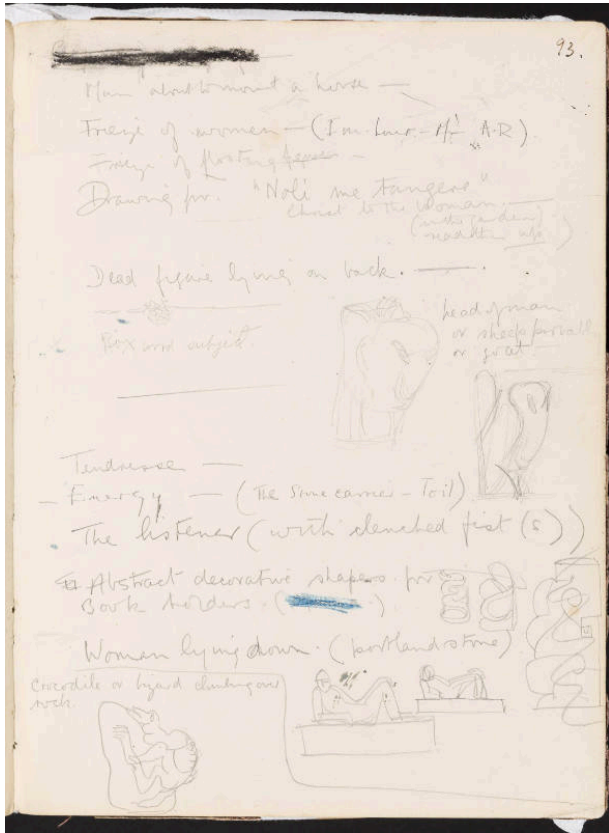 93.
Man about to mount a horse —
Frieze of women — ( A.R)
Frieze of floating figures —
Drawing for. "Noli me tangere"
Christ to the woman.
(in the garden)
Dead figure lying on back. — .
head of man
or sheep
or goat
subject.
Tendresse —
— Energy — (The Stone carrier – Toil)
The listener (with clenched fist (s))
Abstract decorative shapes for
Book borders. ( )
Woman lying down. (portland stone)
Crocodile or lizard climbing over
rock.